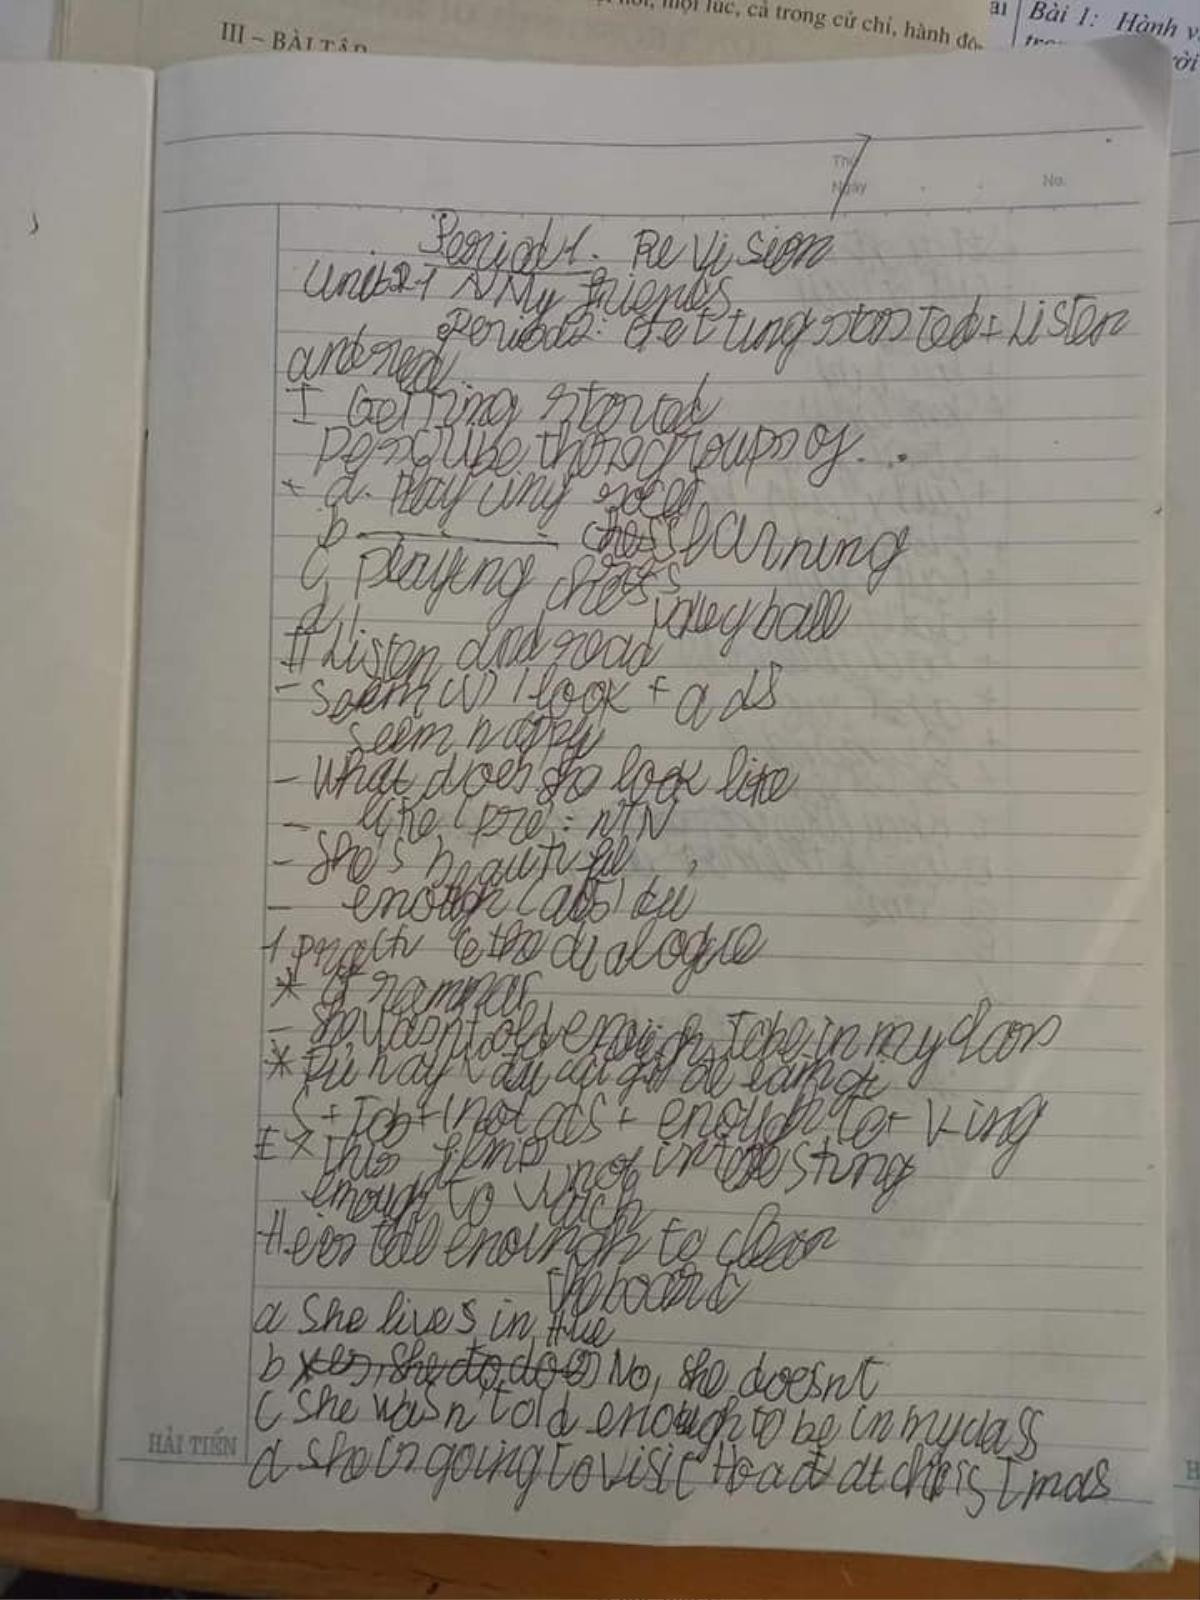 một lúc, cả trong cử chỉ, hành độ
III – BÀI TẬP
Bài 1: Hành v
Thứ
Ngày
No.
Period 1. Revision
Unit 1 My friends
Period 2: Getting started + Listen
and read
I Getting started
these groups of...
a. Playing soccer
b chess learning
c, playing chess
d, volleyball
II Listen and read
- seem (v) / look +
seem happy
- What does she look like
- like (pre): NTN
- She's beautiful
- enough
+ practice the dialogue
* Grammar
- She wasn't old enough to be in my class
*
S + Tob + (not) + enough to + V
This not interesting
enough to watch
He is tall enough to clear
the board
a She lives in Hue
b No, she doesn't
c She wasn't old enough to be in my class
d She is going to visit at
HẢI TIẾN